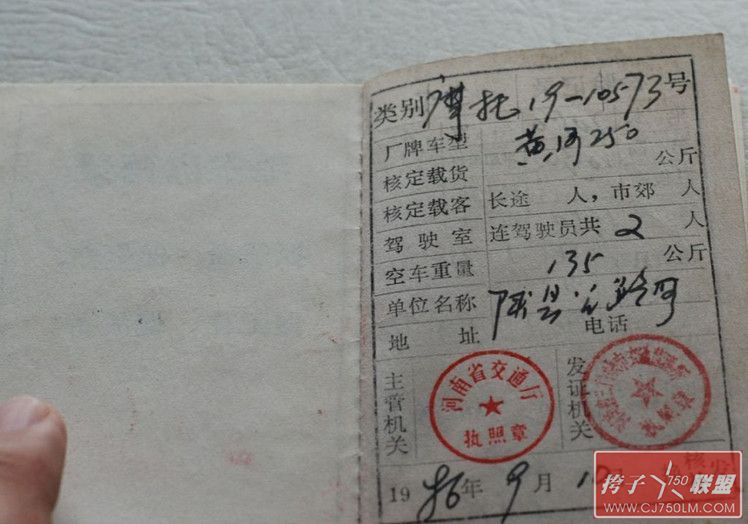 类别 摩托 19-10573号
厂牌车型 黄河250
核定载货 公斤
核定载客 长途 人，市郊 人
驾驶室 连驾驶员共 2 人
空车重量 135 公斤
单位名称 陕县公路
地址 电话
主管机关 发证机关
河南省交通厅
执照章
1986年9月10日
挎子 750 联盟
www.CJ750LM.com